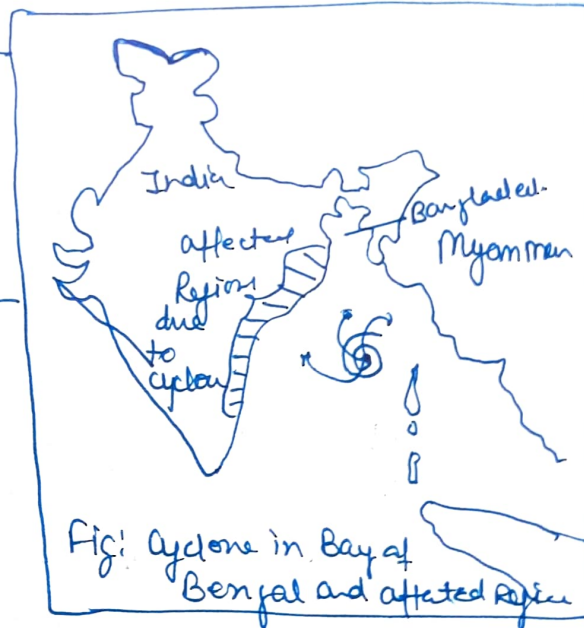 India
Bangladed.
Myanmar
affected
Regions
due
to
cyclon
Fig: Cyclone in Bay of
Bengal and affected Region